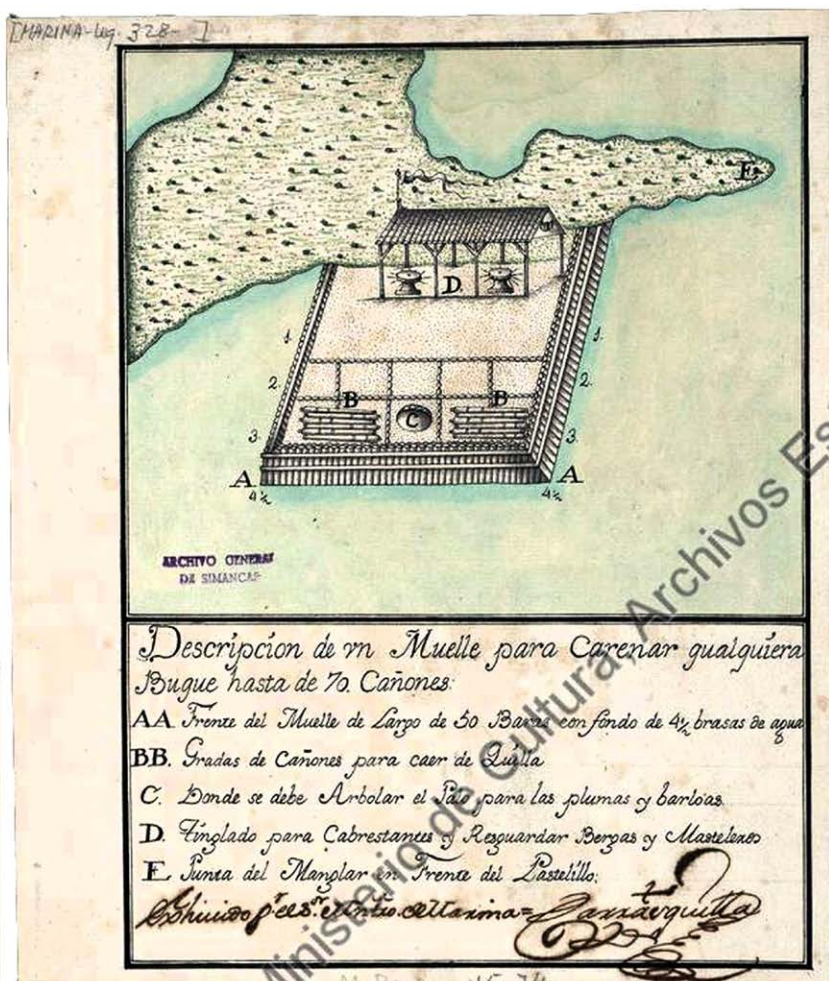 [MARINA-leg. 328- ]
E.
D
1.
1.
2.
2.
B
B
C
3.
3.
A
A
4½
4½
ARCHIVO GENERAL
DE SIMANCAS
Descripcion de vn Muelle para Carenar qualquiera
Buque hasta de 70. Cañones:
AA Frente del Muelle de Largo de 50 Baras con fondo de 4½ brasas de agua
BB. Gradas de Cañones para caer de Quilla
C. Donde se debe Arbolar el Palo para las plumas y barloas.
D. Tinglado para Cabrestantes y Resguardar Bergas y Masteleros
E Punta del Manglar en Frente del Pastelillo:
Ministerio de Cultura, Archivos Es